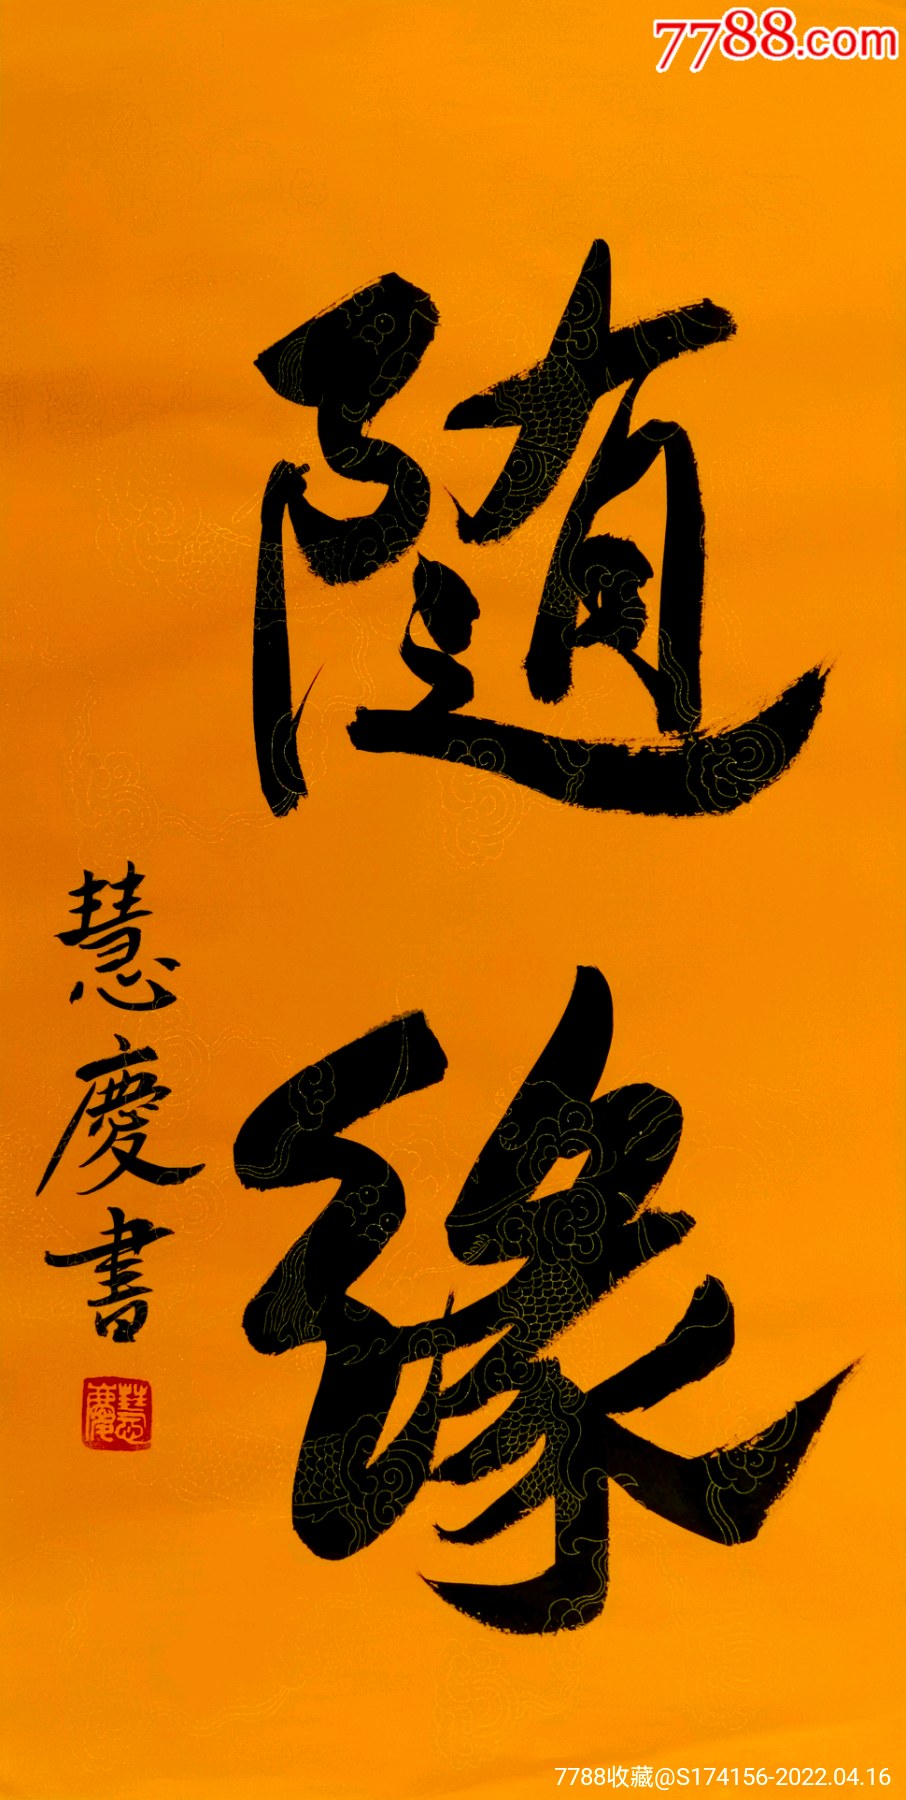 7788.com
随
缘
慧慶書
慧慶
7788收藏@S174156-2022.04.16